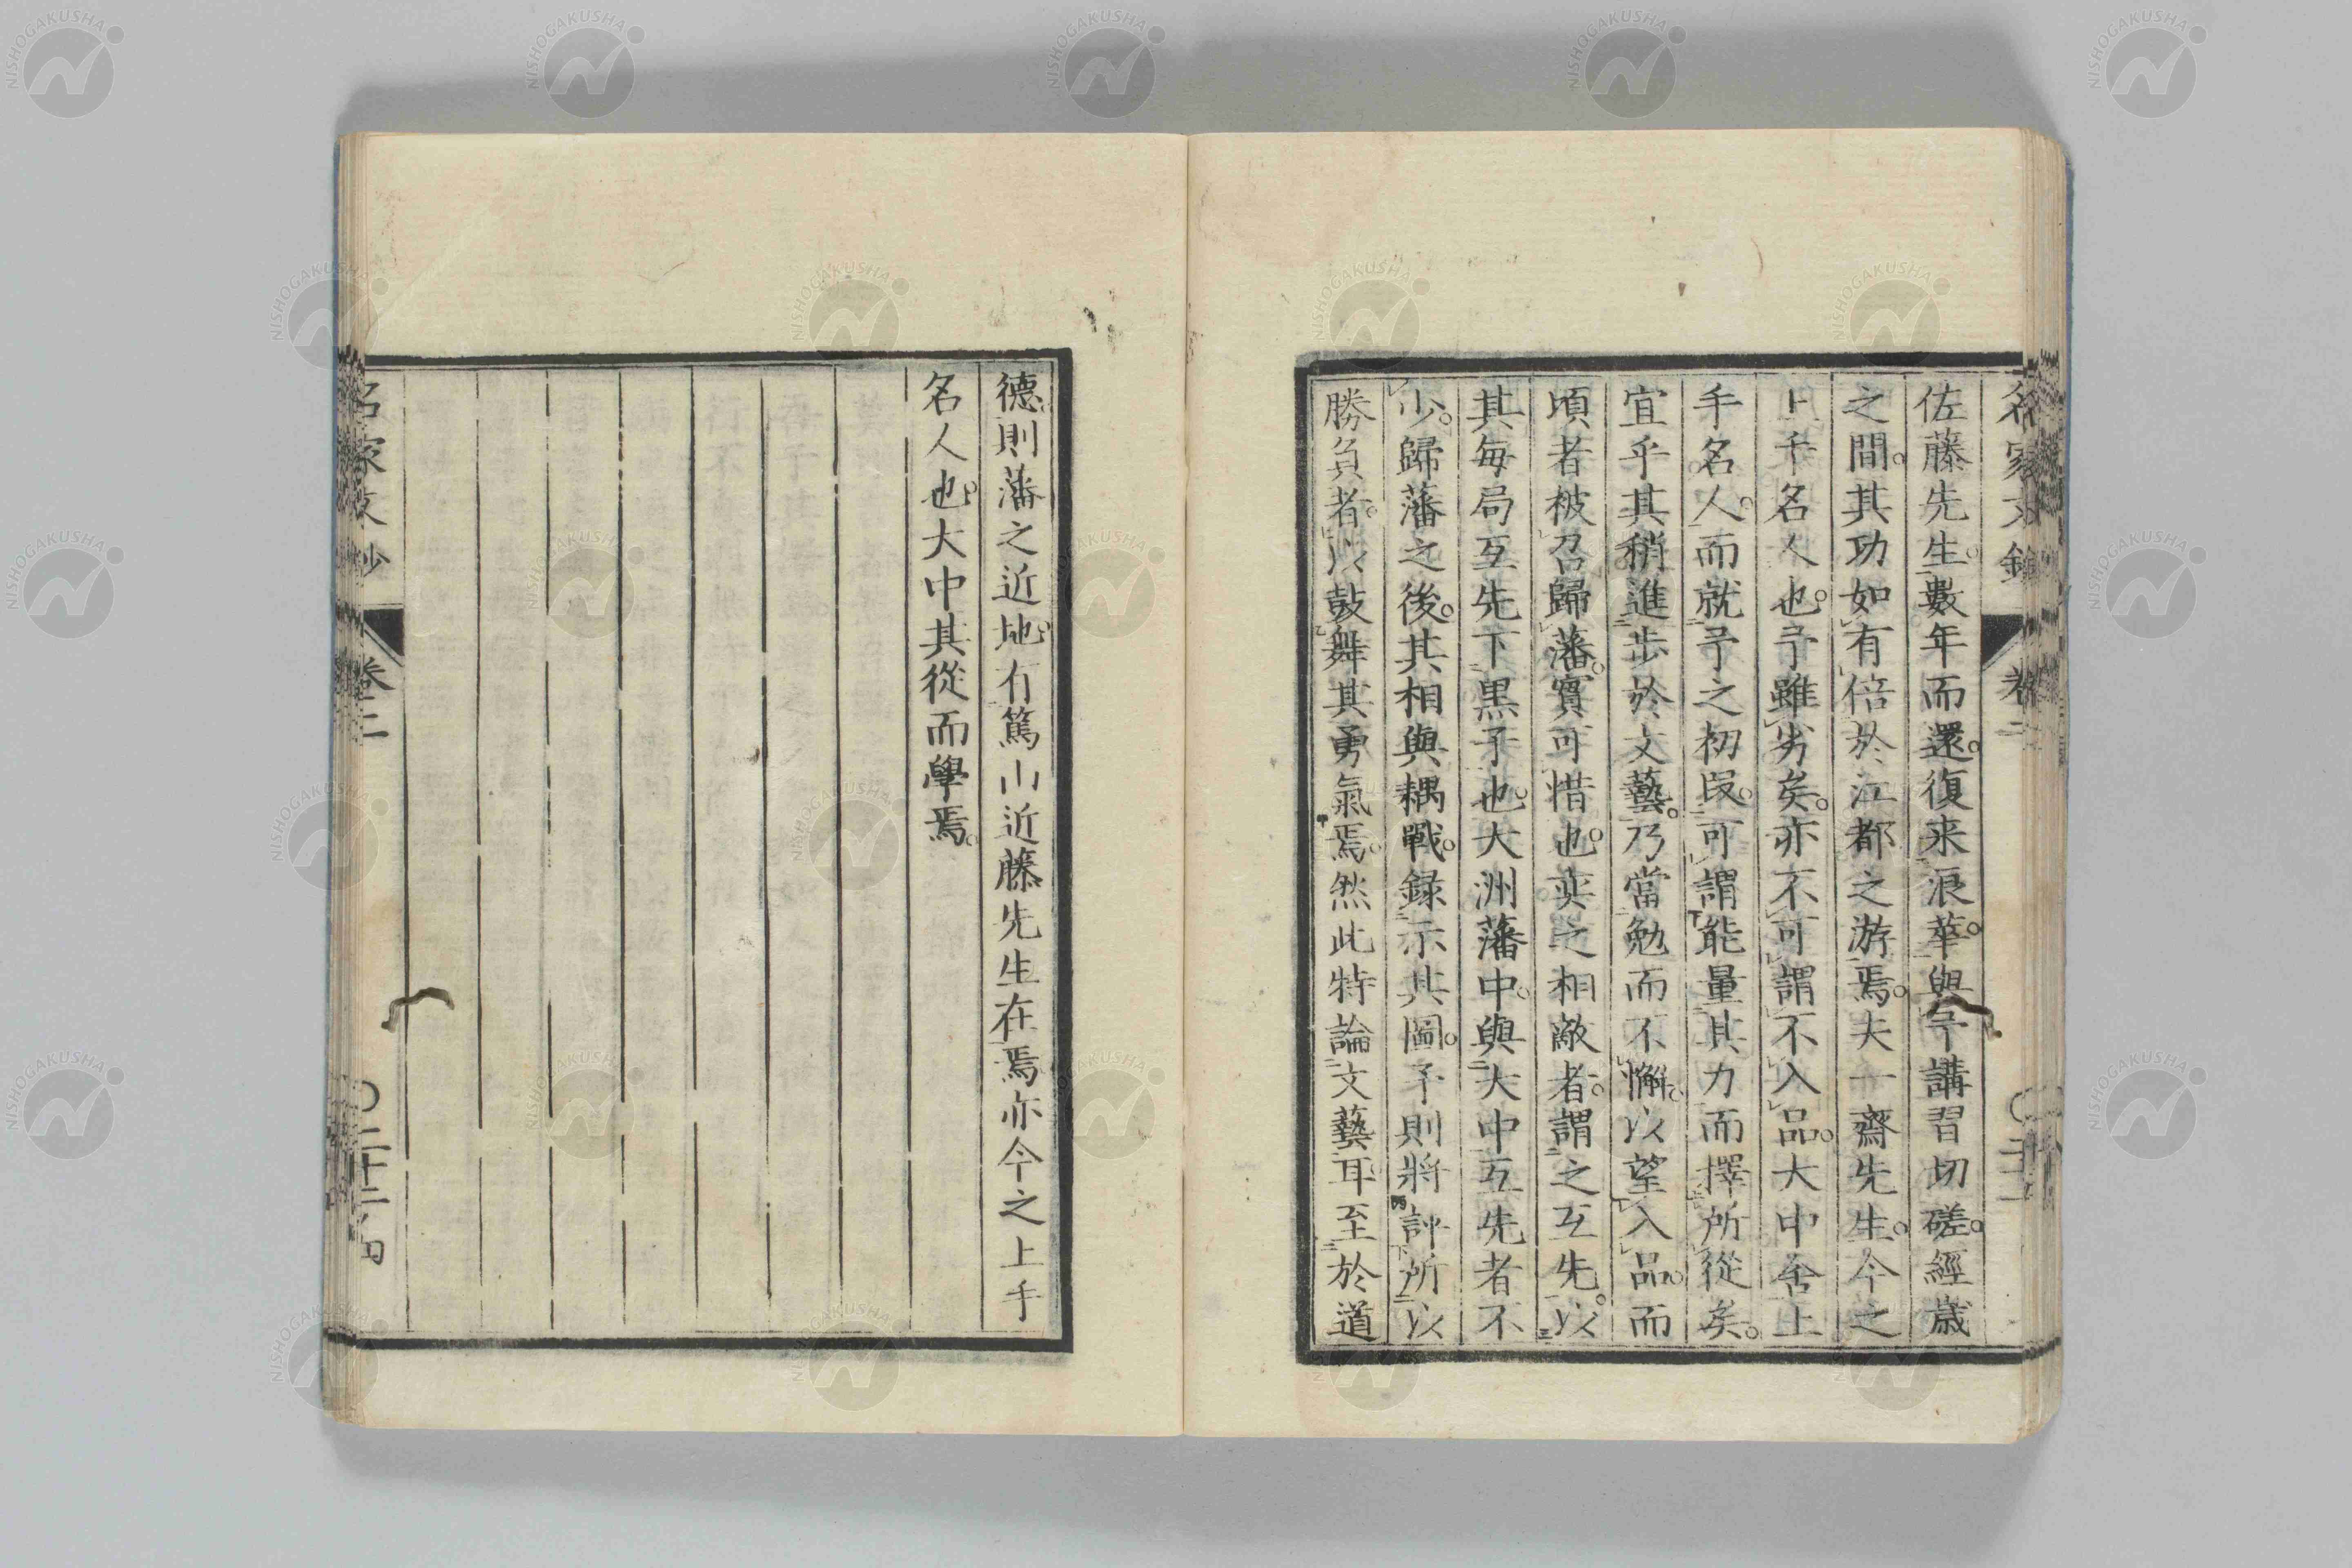 佐藤先生。數年而還。復来浪華。與予講習切磋。經歳
之間。其功如有倍於江都之游焉。夫一齋先生。今之
上手名人也。予雖劣矣。亦不可謂不入品。大中舍上
手名人。而就予之初段。可謂能量其力而擇所從矣。
宜乎其稍進步於文藝。乃當勉而不懈。以望入品。而
頃者被召歸藩。實可惜也。奕之相敵者。謂之互先。以
其每局互先下黒子也。大洲藩中。與大中互先者不
少。歸藩之後。其相與耦戰。録示其圖。予則將評所以
勝負者。以鼓舞其勇氣焉。然此特論文藝耳至於道
德。則藩之近地。有篤山近藤先生在焉亦今之上手
名人也。大中其從而學焉。
名家文鈔
卷二